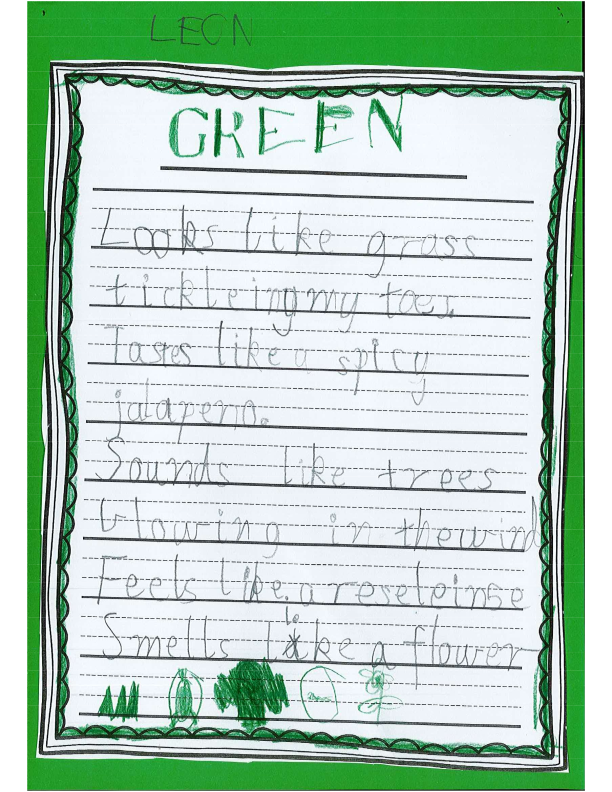 LEON
GREEN
Looks like grass
tickleing my toes.
Tastes like a spicy
jalapeno.
Sounds like trees
blowing in the wind
Feels like a
Smells like a flower